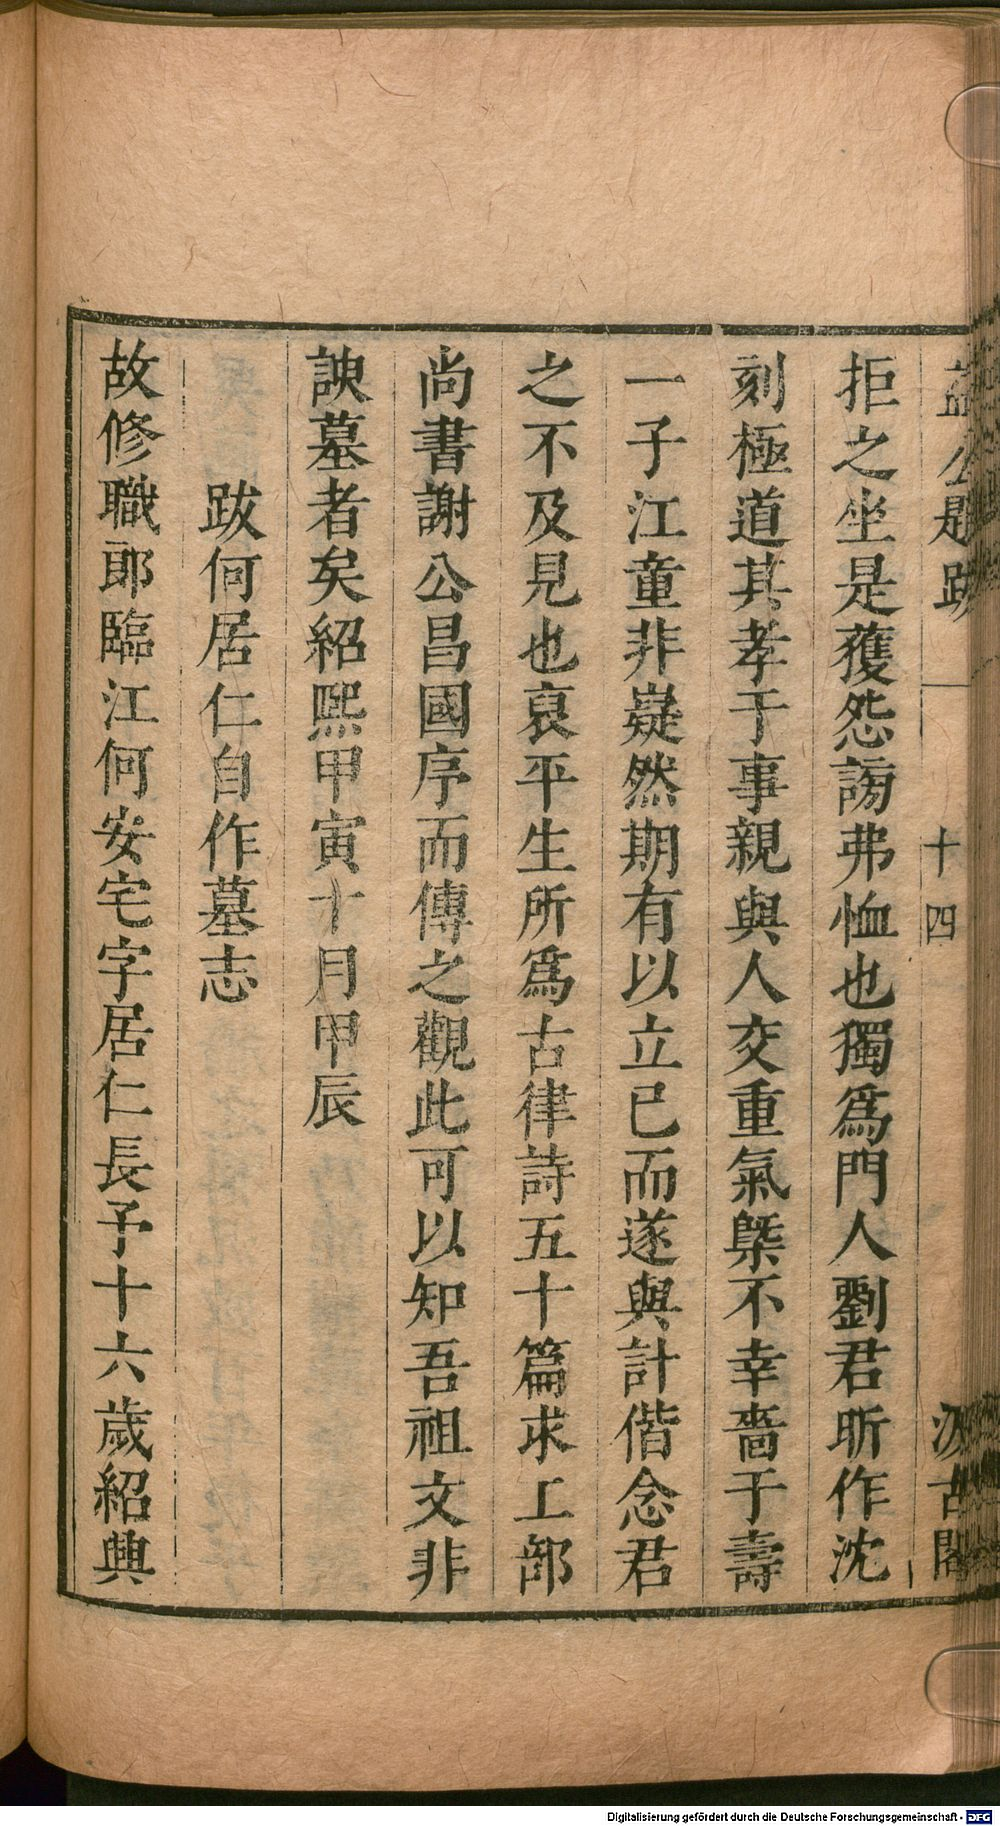 益公題跋 十四 汲古閣
拒之坐是獲怨謗弗恤也獨爲門人劉君昕作沈
刻極道其孝于事親與人交重氣槩不幸嗇于壽
一子江童非嶷然期有以立已而遂與計偕念君
之不及見也裒平生所爲古律詩五十篇求工部
尚書謝公昌國序而傳之觀此可以知吾祖文非
諛墓者矣紹熙甲寅十月甲辰
跋何居仁自作墓志
故修職郎臨江何安宅字居仁長予十六歲紹興
Digitalisierung gefördert durch die Deutsche Forschungsgemeinschaft - DFG